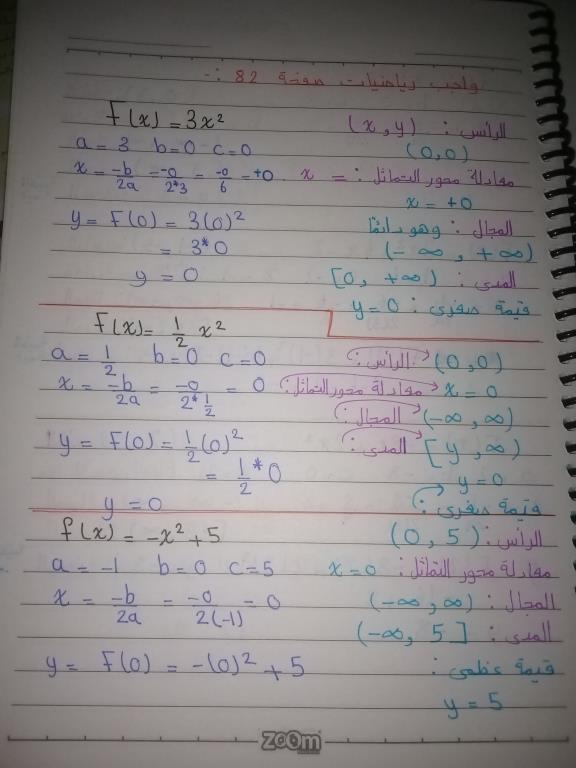 واجب رياضيات صفحة 82 :-
f(x) = 3x²
a = 3 b = 0 c = 0
x = -b/2a = -0/2*3 = -0/6 = +0
y = f(0) = 3(0)²
= 3*0
y = 0
الرأس : (x, y)
(0,0)
معادلة محور التماثل : x =
x = +0
المجال : وهو دائمًا
(-∞, +∞)
المدى : [0, +∞)
قيمة صغرى : y = 0
f(x) = 1/2 x²
a = 1/2 b = 0 c = 0
x = -b/2a = -0/2*1/2 = 0
y = f(0) = 1/2(0)²
= 1/2 * 0
y = 0
الرأس : (0,0)
معادلة محور التماثل : x = 0
المجال : (-∞, ∞)
المدى : [y, ∞)
y = 0
قيمة صغرى :
f(x) = -x² + 5
a = -1 b = 0 c = 5
x = -b/2a = -0/2(-1) = 0
y = f(0) = -(0)² + 5
الرأس : (0, 5)
معادلة محور التماثل : x = 0
المجال : (-∞, ∞)
المدى : (-∞, 5]
قيمة عظمى :
y = 5
zoom